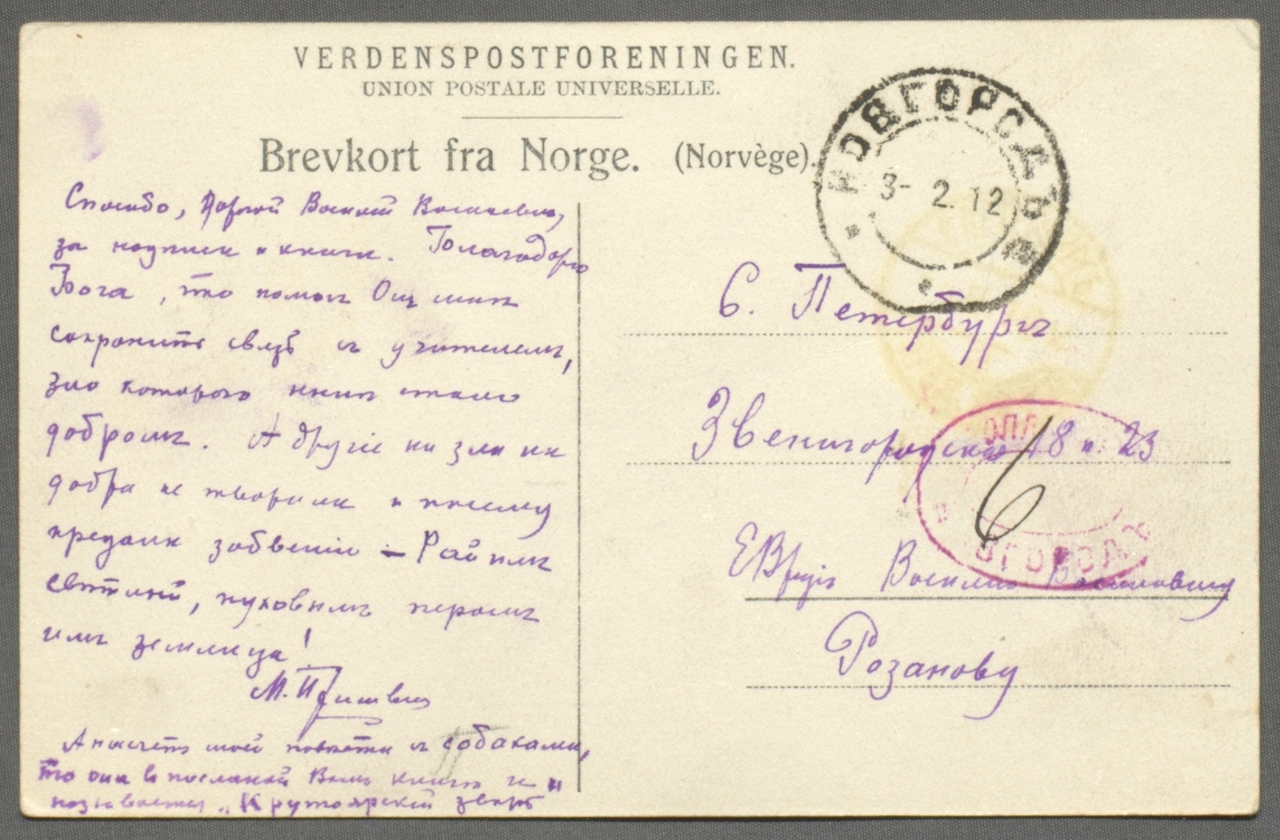 VERDENSPOSTFORENINGEN.
UNION POSTALE UNIVERSELLE.
Brevkort fra Norge. (Norvège).
НОВГОРОДЪ
3- 2. 12
Спасибо, дорогой Василий Васильевич,
за надписи и книги. Благодарю
Бога, что помог Он мнѣ
сохранить связь съ учителемъ,
зло которого мнѣ стало
добромъ. А другіе ни зла ни
добра не творили и потому
преданы забвенію – Рай имъ
свѣтлый, пуховымъ перомъ
имъ землица!
М. Пришвин
А насчетъ моей повѣсти съ собаками,
то она в посланной Вамъ книгѣ и
называется „Крутоярскій звѣрь
С. Петербургъ
Звенигородская 18 к. 23
6
ЕВрдію Василию Васильевичу
Розанову